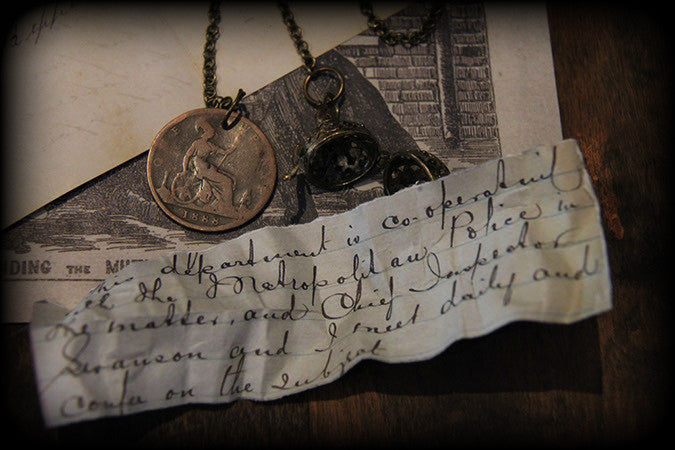 ONE
1888
DING THE MU
This department is co-operating
with the Metropolitan Police in
the matter, and Chief Inspector
Swanson and I meet daily and
confer on the subject